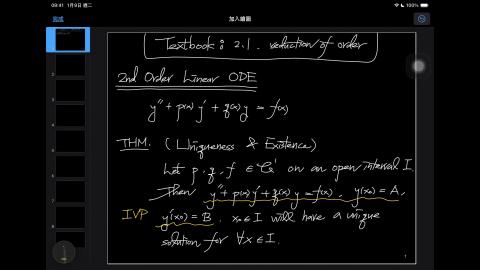 09:41 1月9日 週二
100%
完成
加入繪圖
Textbook: 2.1. reduction of order
2nd Order Linear ODE
y'' + p(x) y' + q(x) y = f(x)
THM. (Uniqueness & Existence)
Let p, q, f ∈ C' on an open interval I.
Then y'' + p(x) y' + q(x) y = f(x), y(x0) = A,
IVP y'(x0) = B, x0 ∈ I will have a unique
solution for ∀x ∈ I.
1
2
3
4
5
6
7
8